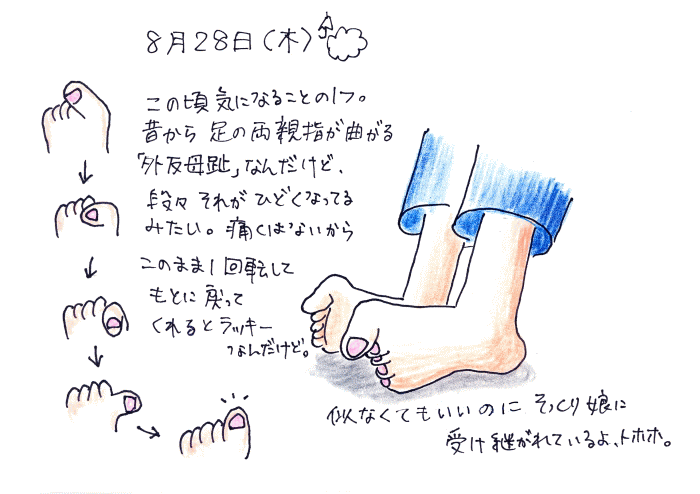 8月28日(木)
この頃気になることの1つ。
昔から 足の両親指が曲がる
「外反母趾」なんだけど、
段々 それが ひどくなってる
みたい。痛くはないから
このまま1回転して
もとに戻って
くれるとラッキー
なんだけど。
似なくてもいいのに そっくり娘に
受け継がれているよ、トホホ。